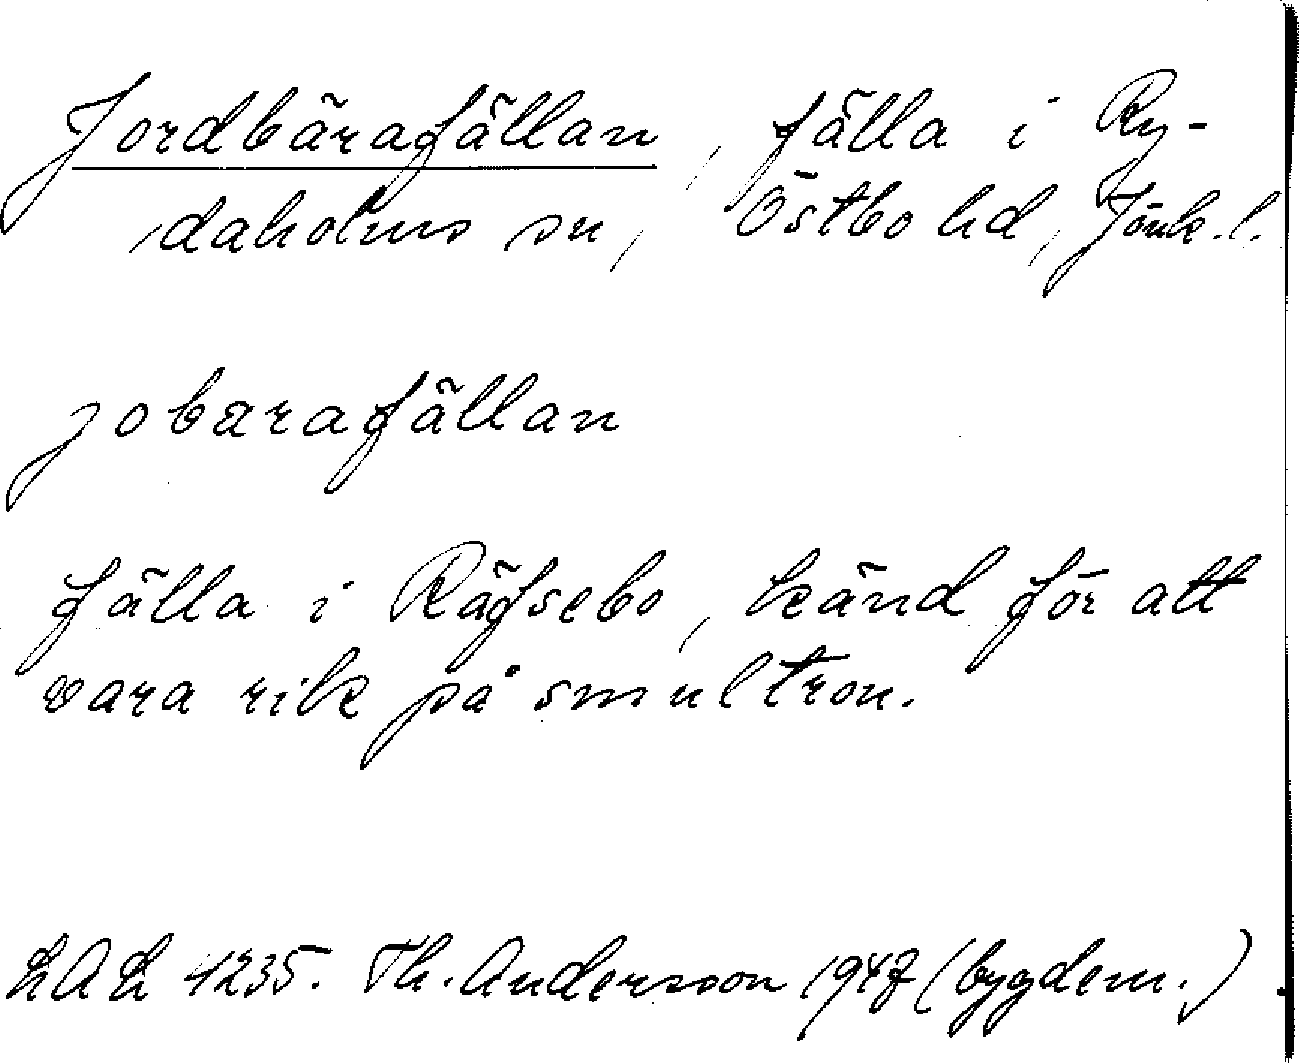 Jordbärafällan, fälla i Ry-
daholms sn, Östbo hd, Jönk.l.
jobarafällan
fälla i Räfsebo, känd för att
vara rik på smultron.
LAL 4235. Th. Andersson 1947 (bygdem.)